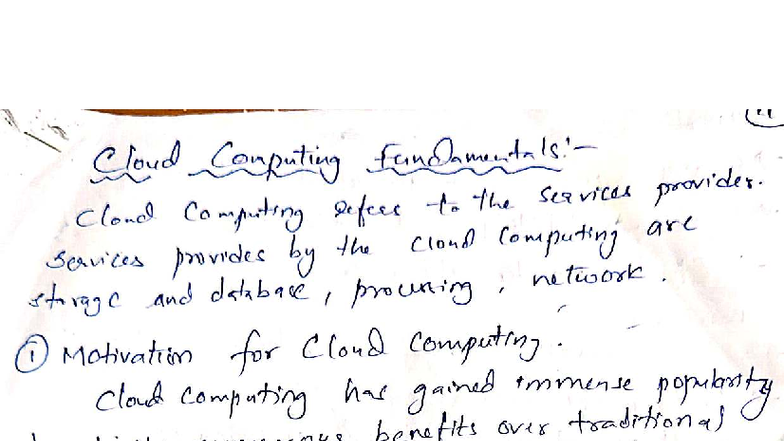 Cloud Computing Fundamentals:-
Cloud Computing refers to the services provider.
Services provides by the cloud computing are
storage and database, processing, network.
① Motivation for Cloud Computing.
Cloud computing has gained immense popularity
benefits over traditional